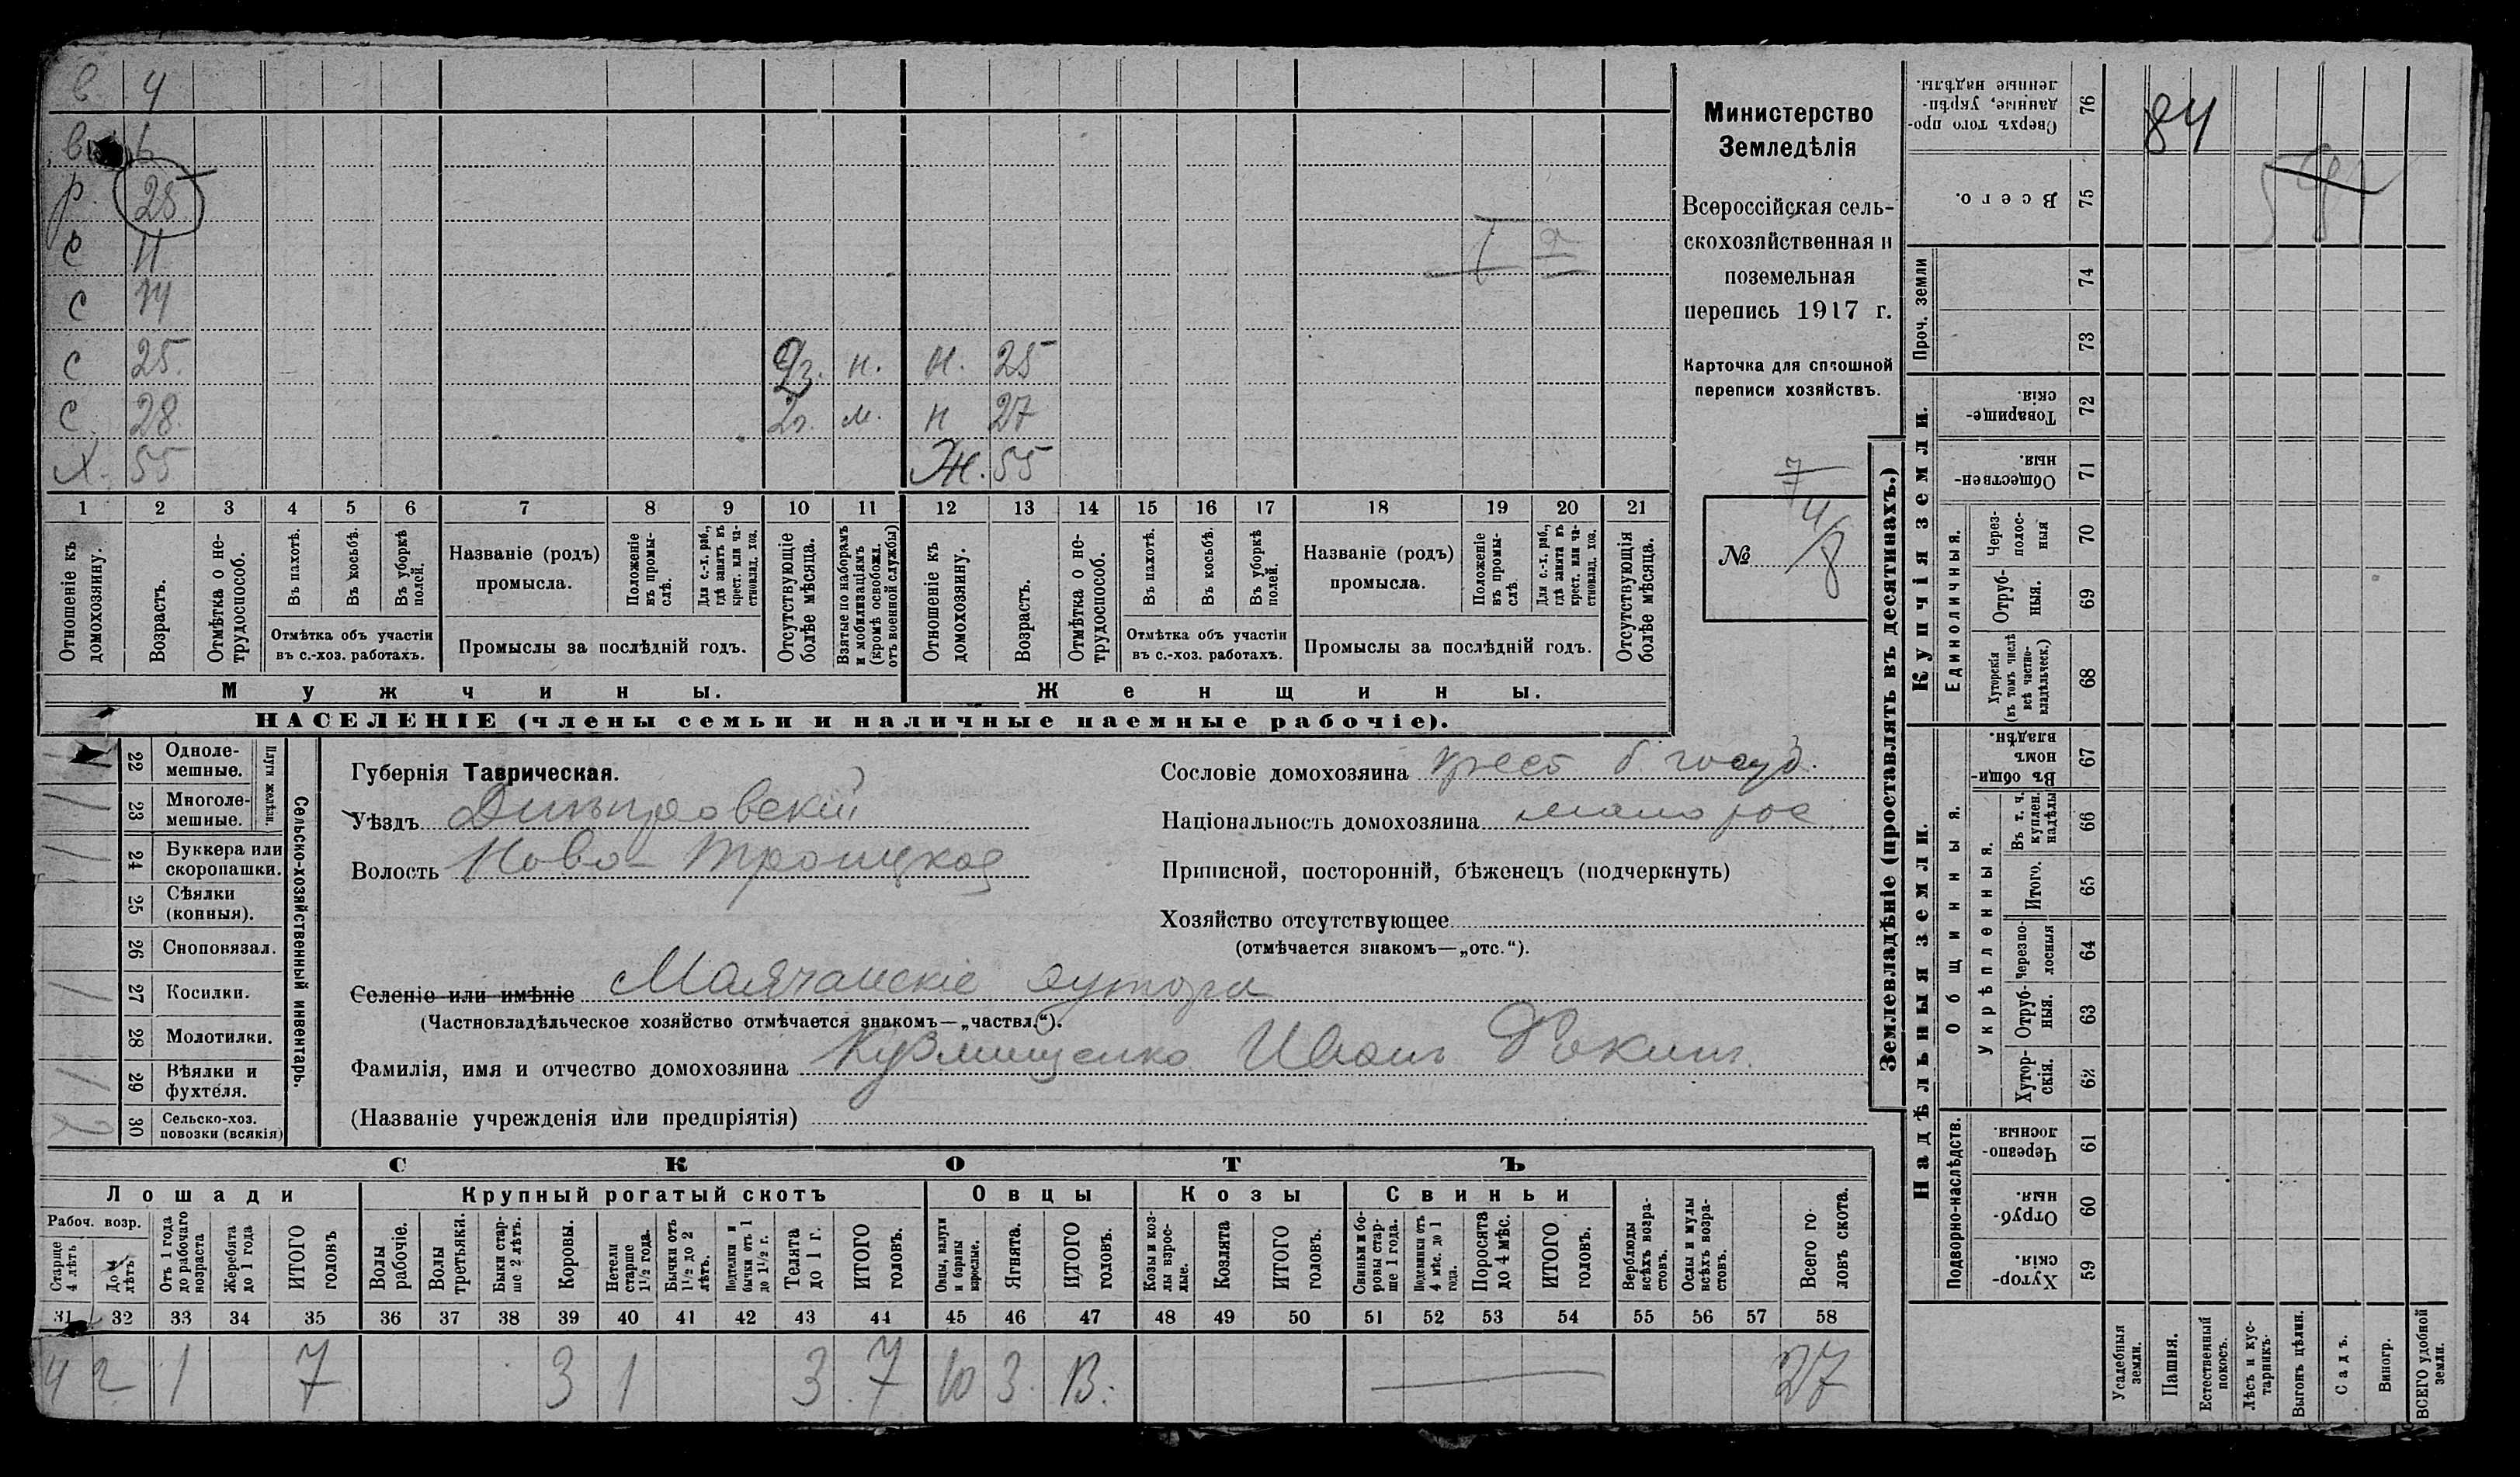 в 4
в
р. 28
с 11
с 14
с 25. 2г. н. н. 25
с. 28. 2г. м. н 27
х. 55 Ж. 55
1 2 3 4 5 6 7 8 9 10 11 12 13 14 15 16 17 18 19 20 21
Отношеніе къ домохозяину.
Возрастъ.
Отмѣтка о не-трудоспособ.
Въ пахотѣ.
Въ косьбѣ.
Въ уборкѣ полей.
Отмѣтка объ участіи
въ с.-хоз. работахъ.
Названіе (родъ)
промысла.
Положеніе въ промы-слѣ.
Для с.-х. раб., гдѣ занятъ въ крест. или ча-стновлад. хоз.
Промыслы за послѣдній годъ.
Отсутствующіе болѣе мѣсяца.
Взятые по наборамъ и мобилизаціямъ (кромѣ освобожд. отъ военной службы)
Отношеніе къ домохозяину.
Возрастъ.
Отмѣтка о не-трудоспособ.
Въ пахотѣ.
Въ косьбѣ.
Въ уборкѣ полей.
Отмѣтка объ участіи
въ с.-хоз. работахъ.
Названіе (родъ)
промысла.
Положеніе въ промы-слѣ
Для с.-х. раб., гдѣ занята въ крест. или ча-стновлад. хоз.
Промыслы за послѣдній годъ.
Отсутствующія болѣе мѣсяца.
Мужчины.
Женщины.
НАСЕЛЕНІЕ (члены семьи и наличные наемные рабочіе).
Министерство
Земледѣлія
Всероссійская сель-
скохозяйственная и
поземельная
перепись 1917 г.
Карточка для сплошной
переписи хозяйствъ.
7
№ 4/8
22 Одноле-
мешные.
23 Многоле-
мешные.
Плуги желѣзн.
24 Буккера или
скоропашки.
25 Сѣялки
(конныя).
26 Сноповязал.
27 Косилки.
28 Молотилки.
29 Вѣялки и
фухтеля.
30 Сельско-хоз.
повозки (всякія)
Сельско-хозяйственный инвентарь.
Губернія Таврическая.
Уѣздъ Днѣпровскій
Волость Ново-Троицкая
Сословіе домохозяина крест б. госуд.
Національность домохозяина малорос
Приписной, посторонній, бѣженецъ (подчеркнуть)
Хозяйство отсутствующее
(отмѣчается знакомъ—„отс.“).
Селеніе или имѣніе Маячанскіе хутора
(Частновладѣльческое хозяйство отмѣчается знакомъ—„частвл.“).
Фамилія, имя и отчество домохозяина Кузмищенко Иванъ Фокинъ.
(Названіе учрежденія или предпріятія)
СКОТЪ
Лошади Крупный рогатый скотъ Овцы Козы Свиньи
Рабоч. возр.
Старше 4 лѣтъ
До 4 лѣтъ
Отъ 1 года до рабочаго возраста
Жеребята до 1 года
ИТОГО головъ
Волы рабочіе.
Волы третьяки.
Быки стар-ше 2 лѣтъ.
Коровы.
Нетели старше 1½ года.
Бычки отъ 1½ до 2 лѣтъ.
Подтелки и бычки отъ 1 до 1½ г.
Телята до 1 г.
ИТОГО головъ.
Овцы, валухи и бараны взрослые.
Ягнята.
ИТОГО головъ.
Козы и коз-лы взрос-лые.
Козлята
ИТОГО головъ.
Свиньи и бо-ровы стар-ше 1 года.
Подсвинки отъ 4 мѣс. до 1 года.
Поросята до 4 мѣс.
ИТОГО головъ.
Верблюды всѣхъ возра-стовъ.
Ослы и мулы всѣхъ возра-стовъ.
Всего го-ловъ скота.
31 32 33 34 35 36 37 38 39 40 41 42 43 44 45 46 47 48 49 50 51 52 53 54 55 56 57 58
4 2 1 7 3 1 3 7 10 3. 13. 27
Землевладѣніе (проставлять въ десятинахъ.)
Купчія земли.
Надѣльныя земли.
Сверхъ того про-данные, укрѣп-ленные надѣлы. 76 84
Всего. 75
Проч. земли 74
73
Товарище-скія. 72
Обществен-ныя. 71
Единоличныя.
Через-полос-ныя 70
Отруб-ныя. 69
Хуторскія (въ томъ числѣ всѣ частно-владѣльческ.) 68
Общинныя.
Въ общин-номъ владѣн. 67
Укрѣпленныя.
Въ т. ч. куплен. надѣлы 66
Итого. 65
Черезпо-лосныя 64
Отруб-ныя. 63
Хутор-скія. 62
Подворно-наслѣдств.
Черезпо-лосныя. 61
Отруб-ныя. 60
Хутор-скія. 59
Усадебныя земли.
Пашня.
Естественный покосъ.
Лѣсъ и кус-тарникъ.
Выгонъ цѣлин.
Садъ.
Виногр.
ВСЕГО удобной земли.